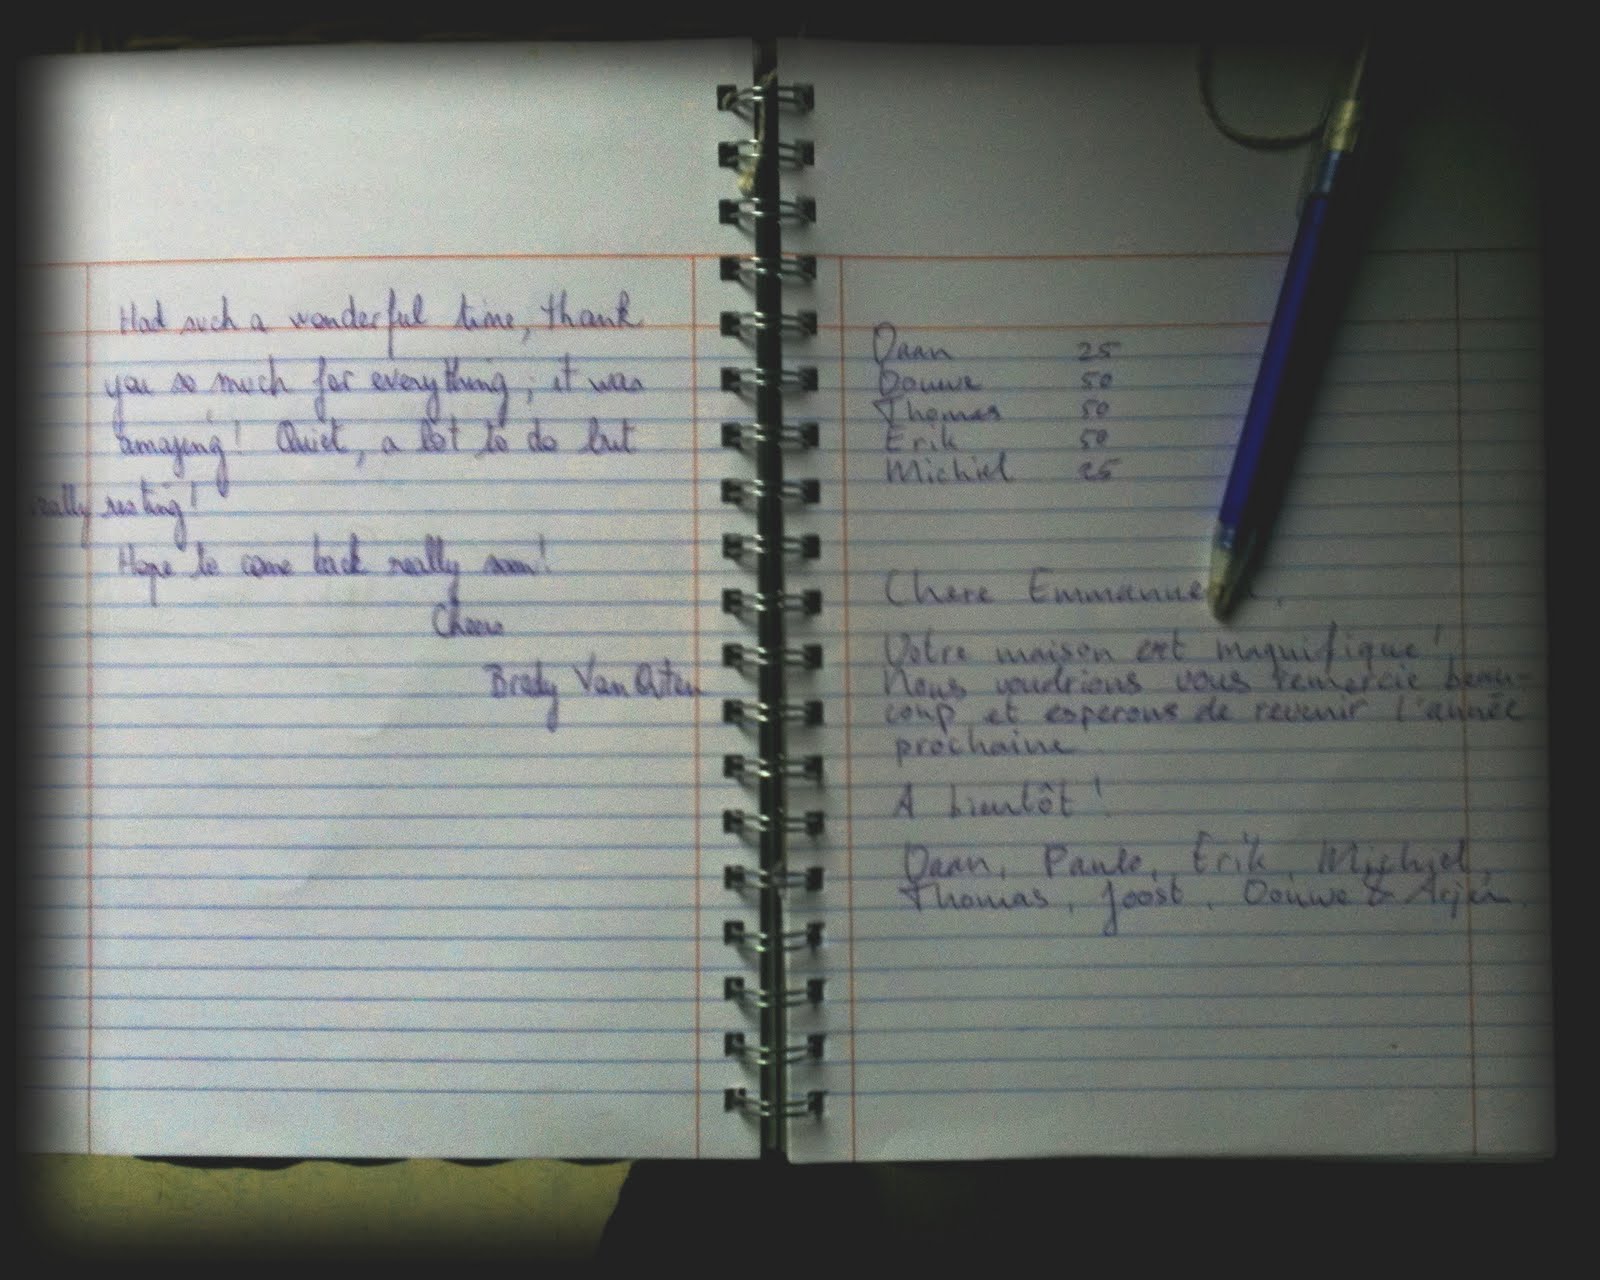 Had such a wonderful time, thank
you so much for everything, it was
amazing! Quiet, a lot to do but
really resting!
Hope to come back really soon!
Cheers
Brady Van
Daan 25
Douwe 50
Thomas 50
Erik 50
Michiel 25
Chere
Votre maison est magnifique!
Nous voudrions vous remercie beau-
coup et esperons de revenir l'année
prochaine
A bientôt!
Daan, Paule, Erik, Michiel,
Thomas, Joost, Douwe & Arjen.